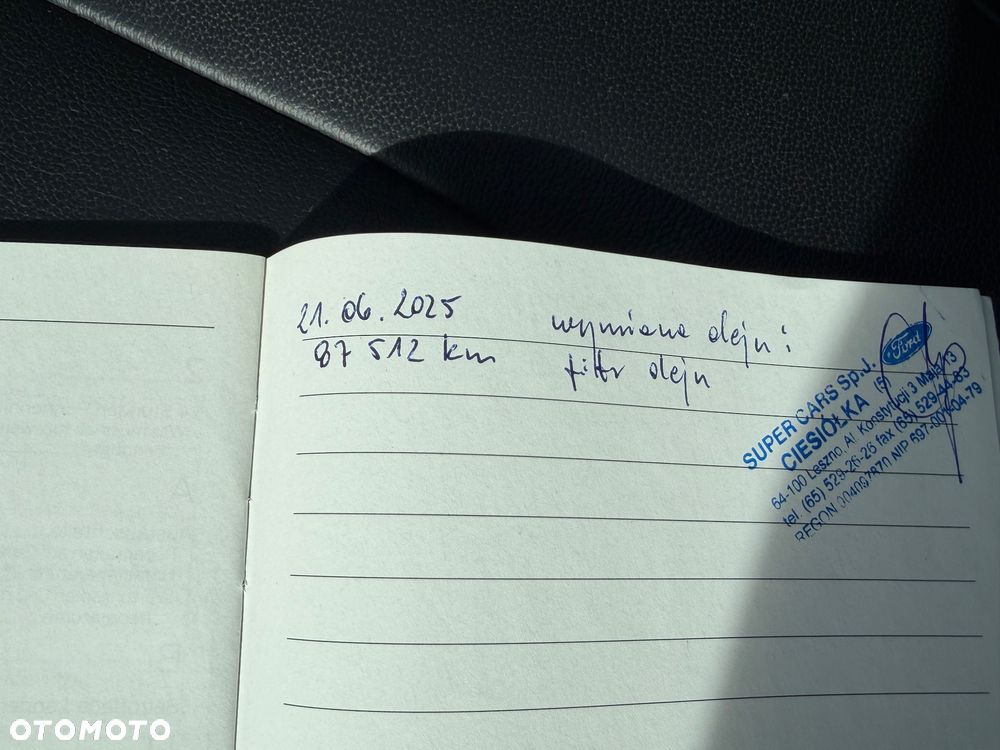 21.06.2025
87 512 km
wymiana oleju i
filtr oleju
Ford
SUPER CARS Sp.J.
CIESIÓŁKA (5)
64-100 Leszno, Al. Konstytucji 3 Maja
tel. (65) 529-26-26 fax (65) 529-44-83
REGON NIP 697-001-04-79
OTOMOTO